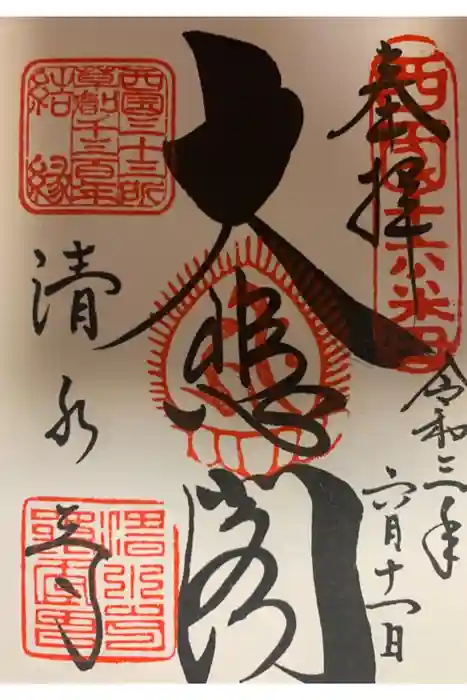 奉拝
西国十六番
令和三年
六月十一日
大悲閣
西国三十三所
草創千三百年
結縁
清水寺